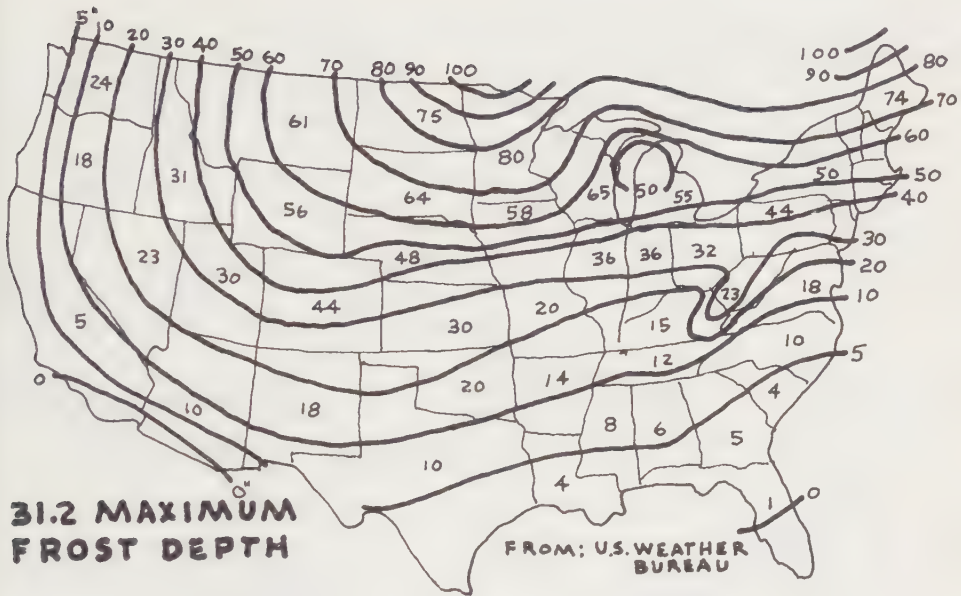 5" 10 20 30 40 50 60 70 80 90 100
100
90
80
70
60
50
40
30
20
10
5
24
18
31
61
75
80
74
56
64
58
65
50
55
50
44
23
30
48
36
36
32
44
20
23
18
5
30
15
10
20
14
12
10
18
8
6
5
4
10
4
1
0
0
0"
31.2 MAXIMUM
FROST DEPTH
FROM: U.S. WEATHER
BUREAU